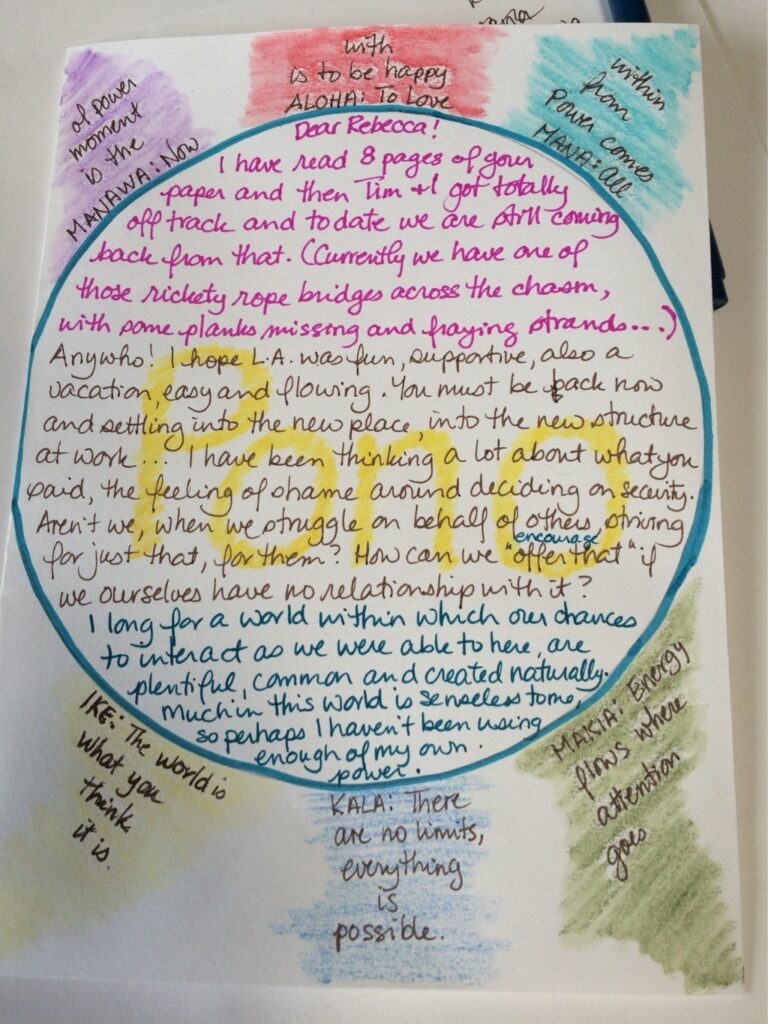 MANAWA: Now
is the
moment
of power
ALOHA: To Love
is to be happy
with
MANA: All
Power comes
from
within
Dear Rebecca!
I have read 8 pages of your
paper and then Tim + I got totally
off track and to date we are still coming
back from that. (Currently we have one of
those rickety rope bridges across the chasm,
with some planks missing and fraying strands...)
Anywho! I hope L.A. was fun, supportive, also a
vacation, easy and flowing. You must be back now
and settling into the new place, into the new structure
at work... I have been thinking a lot about what you
said, the feeling of shame around deciding on security.
Aren't we, when we struggle on behalf of others, striving
for just that, for them? How can we "offer that" if
encourage
we ourselves have no relationship with it?
I long for a world within which our chances
to interact as we were able to here, are
plentiful, common and created naturally.
Much in this world is senseless to me,
so perhaps I haven't been using
enough of my own
power.
Pono
MAKIA: Energy
flows where
attention
goes
KALA: There
are no limits,
everything
is
possible.
IKE: The world is
what you
think
it is.